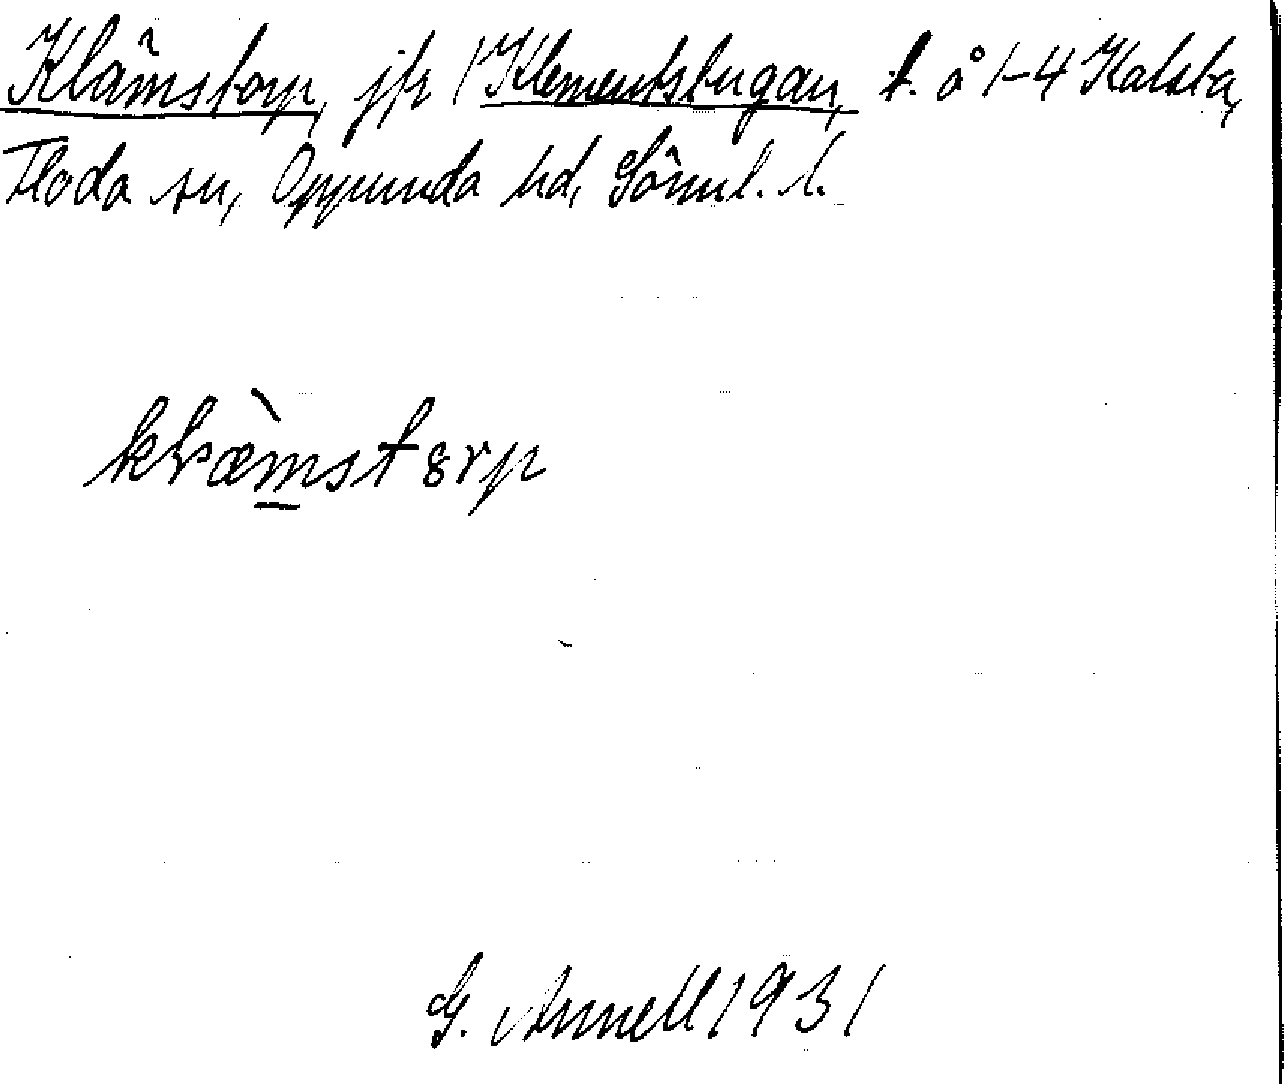 Klämstorp, jfr 1 Klementsstugan, t. å 1-4 Kalsta,
Floda sn, Oppunda hd, Sörml. l.
klæ̀mstɔrp
G. Annell 1931